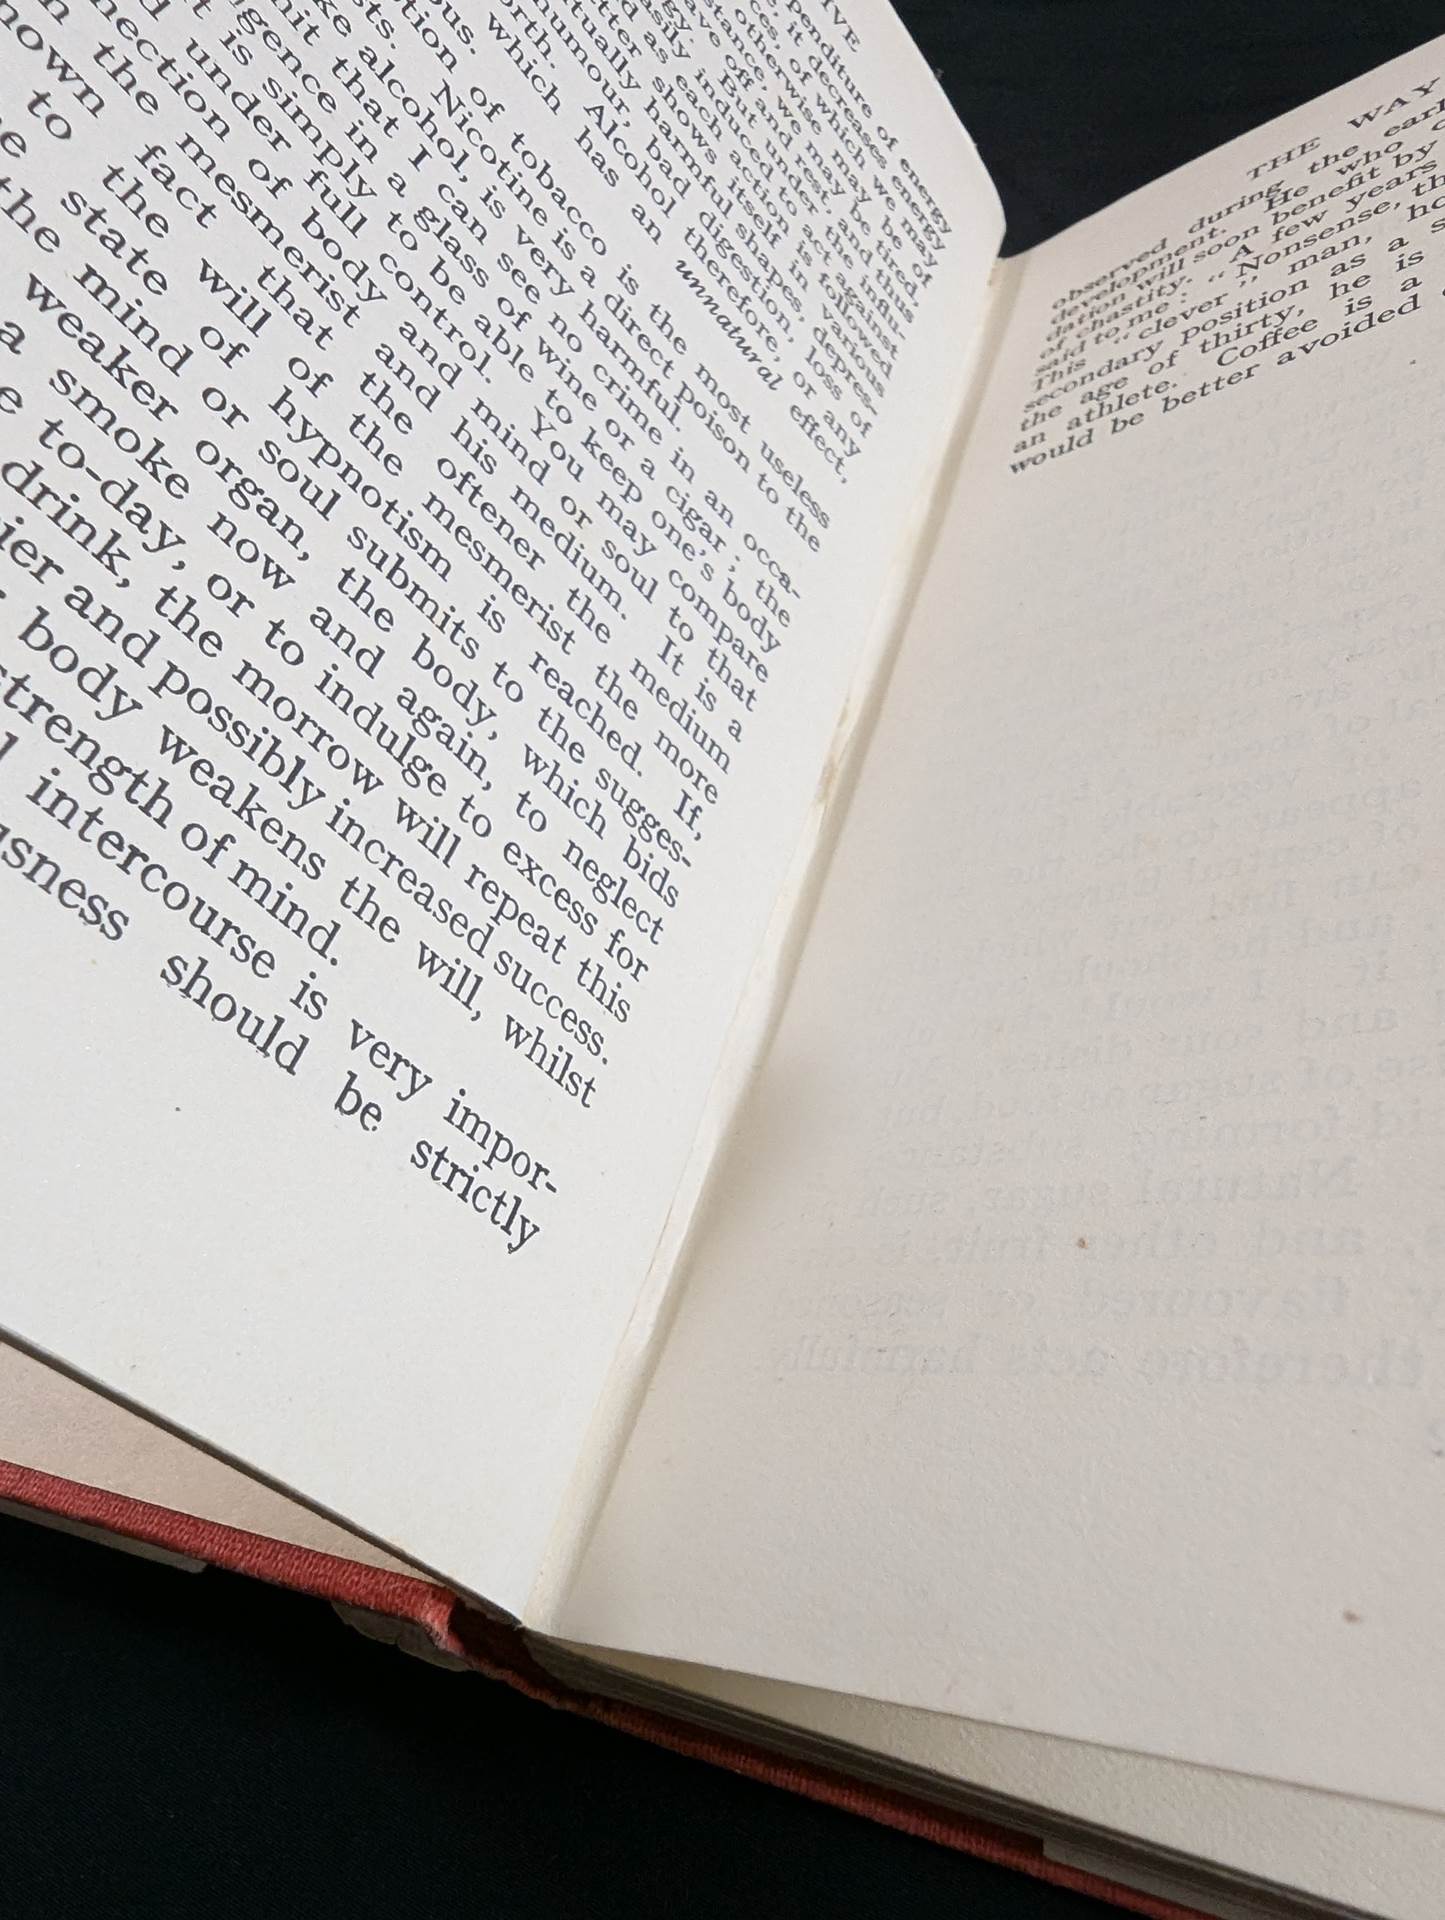 IVE
penditure of energy
, it decreases energy
ces, of which we may
otherwise may be of
stance, we may be tired,
ave off, and rest, and thus
gy. But under the influ-
easily induced to act against
d as each action is followed
etter shows itself in various
tually harmful shapes, depres-
humour, bad digestion, loss of
orth. Alcohol therefore, or any
which has an unnatural effect,
ous.
tion of tobacco is the most useless
sts. Nicotine is a direct poison to the
ke alcohol, is very harmful.
it that I can see no crime in an occa-
gence in a glass of wine or a cigar; the
is simply to be able to keep one's body
under full control. You may compare
nection of body and mind or soul to that
the mesmerist and his medium. It is a
nown fact that the oftener the medium
to the will of the mesmerist the more
e state of hypnotism is reached. If,
the mind or soul submits to the sugges-
weaker organ, the body, which bids
a smoke now and again, to neglect
e to-day, or to indulge to excess for
drink, the morrow will repeat this
ier and possibly increased success.
body weakens the will, whilst
strength of mind.
l intercourse is very impor-
usness should be strictly
THE WAY
observed during the earl
development. He who
dation will soon benefit by
of chastity. A few years
said to me: "Nonsense, th
This "clever" man, ho
secondary position as a s
the age of thirty, he is
an athlete. Coffee is a
would be better avoided